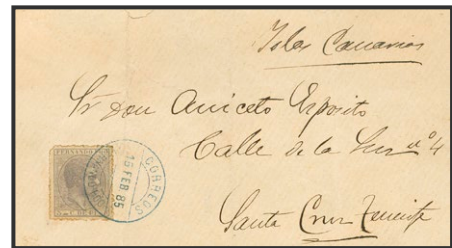 Islas Canarias
Sr Don Aniceto Esposito
Calle de la Luz nº 4
Santa Cruz Tenerife
FERNANDO
CORREOS
16 FEB 85